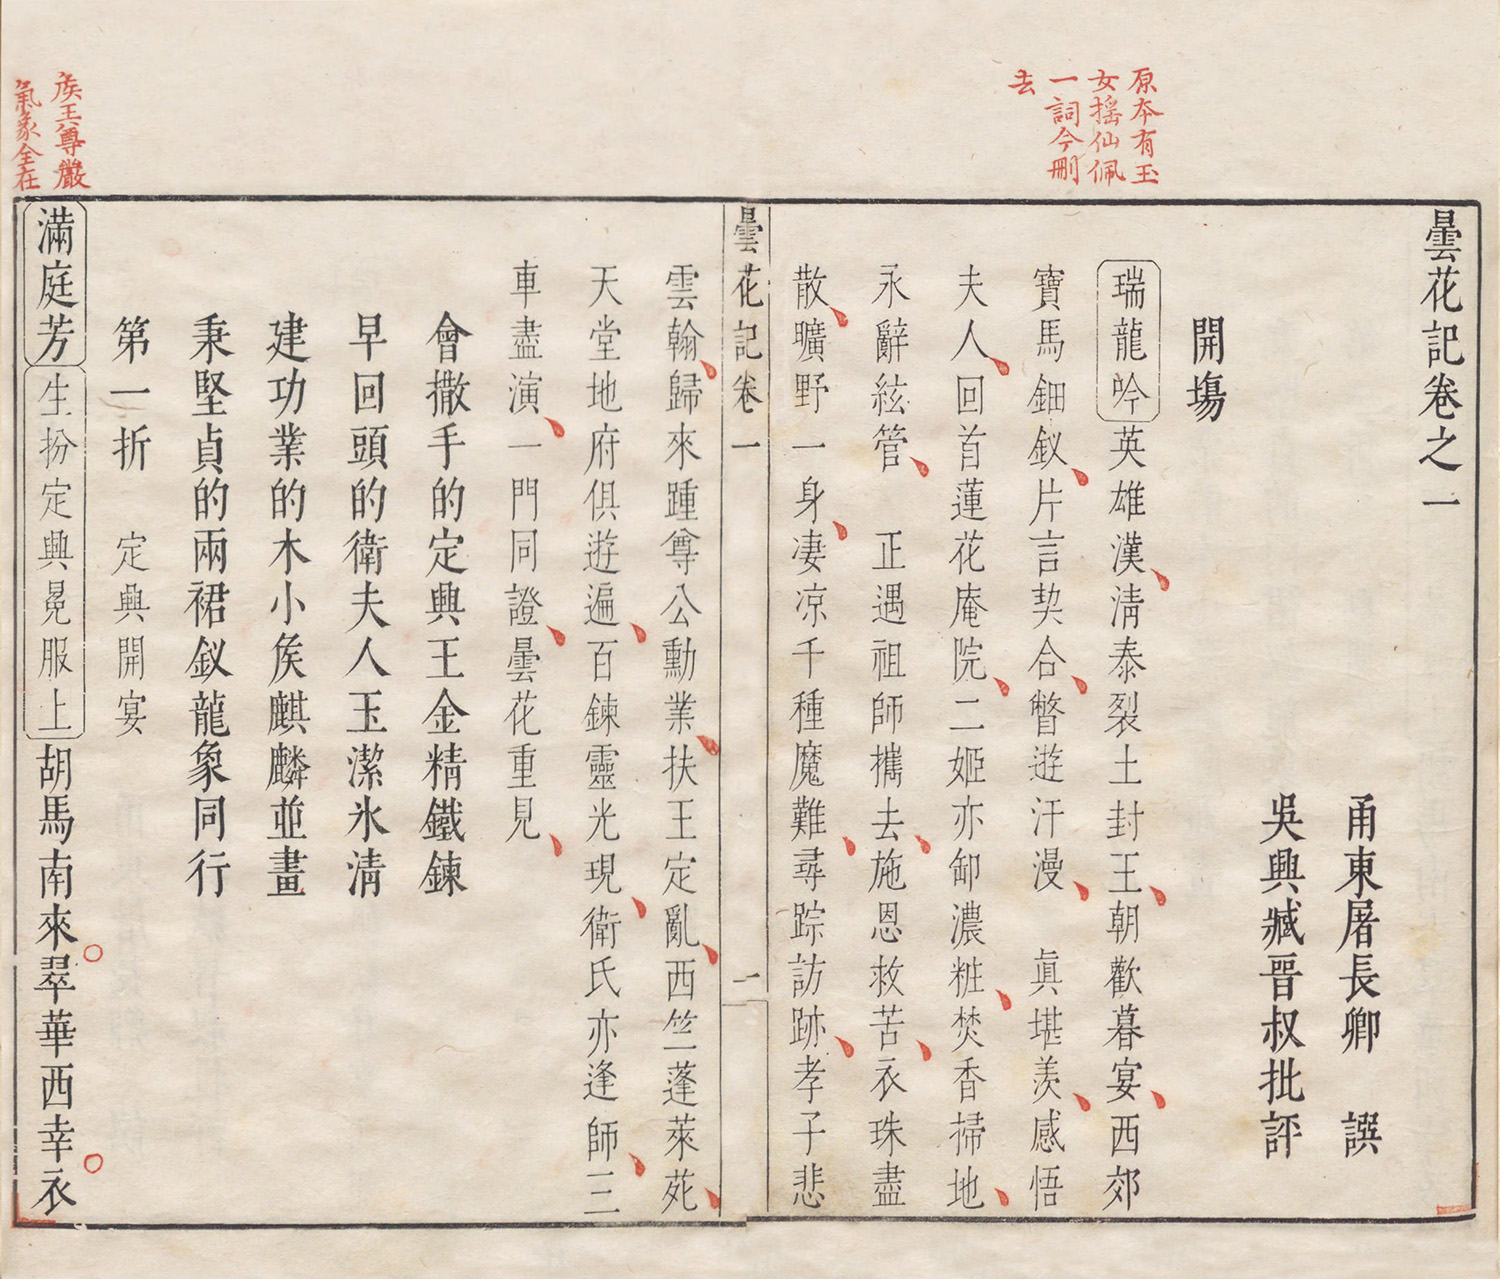 原本有玉
女搖仙佩
一詞今刪
去
曇花記卷之一
甬東屠長卿 譔
吳興臧晉叔批評
開場
瑞龍吟英雄漢清泰裂土封王朝歡暮宴西郊
寶馬鈿釵片言契合瞥遊汗漫 眞堪羨感悟
夫人回首蓮花庵院二姬亦卸濃粧焚香掃地
永辭絃管 正遇祖師攜去施恩救苦衣珠盡
散曠野一身凄凉千種魔難尋踪訪跡孝子悲
曇花記卷一
一
雲翰歸來踵尊公勳業扶王定亂西竺蓬萊苑
天堂地府俱遊遍百鍊靈光現衛氏亦逢師三
車盡演一門同證曇花重見
會撒手的定興王金精鐵鍊
早回頭的衛夫人玉潔氷清
建功業的木小侯麒麟並畫
秉堅貞的兩裙釵龍象同行
第一折 定興開宴
侯王尊嚴
氣象全在
滿庭芳生扮定興冕服上胡馬南來翠華西幸衣